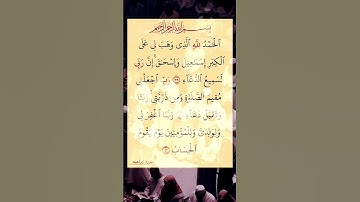 بِسْمِ اللَّهِ الرَّحْمَٰنِ الرَّحِيمِ
ٱلْحَمْدُ لِلَّهِ ٱلَّذِى وَهَبَ لِى عَلَى
ٱلْكِبَرِ إِسْمَٰعِيلَ وَإِسْحَٰقَ إِنَّ رَبِّى
لَسَمِيعُ ٱلدُّعَآءِ ٣٩ رَبِّ ٱجْعَلْنِى
مُقِيمَ ٱلصَّلَوٰةِ وَمِن ذُرِّيَّتِى رَبَّنَا
وَتَقَبَّلْ دُعَآءِ ٤٠ رَبَّنَا ٱغْفِرْ لِى
وَلِوَٰلِدَىَّ وَلِلْمُؤْمِنِينَ يَوْمَ يَقُومُ
ٱلْحِسَابُ ٤١
سورة إبراهيم